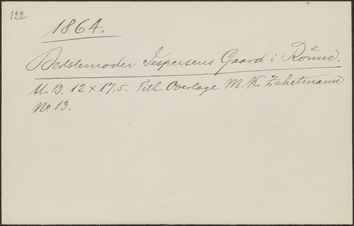 122
1864.
Bedstemoder Jespersens Gaard i Rönne.
U. B. 12 x 17,5. Lith. Overlage M. W. Zahrtmann
No. 13.